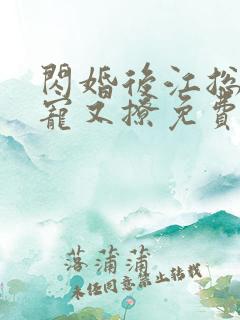 閃婚後江總
寵又撩免費
落蒲蒲
未經同意禁止轉載